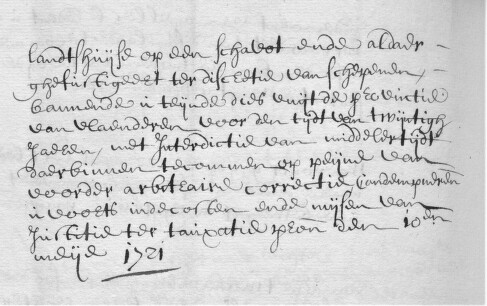 landtshuijse op een schavot ende aldaer
ghefustigeert ter discretie van schepenen,
bannende u teijnde dies uuijt de provintie
van vlaenderen voor den tijdt van twijntigh
Jaeren, met Interdictie van middelertijdt
daerbinnen te commen op peijne van
voorder arbitraire correctie Condempneren
u voorts inde costen ende mijsen van
Justitie ter tauxatie pron den 10den
meije 1721